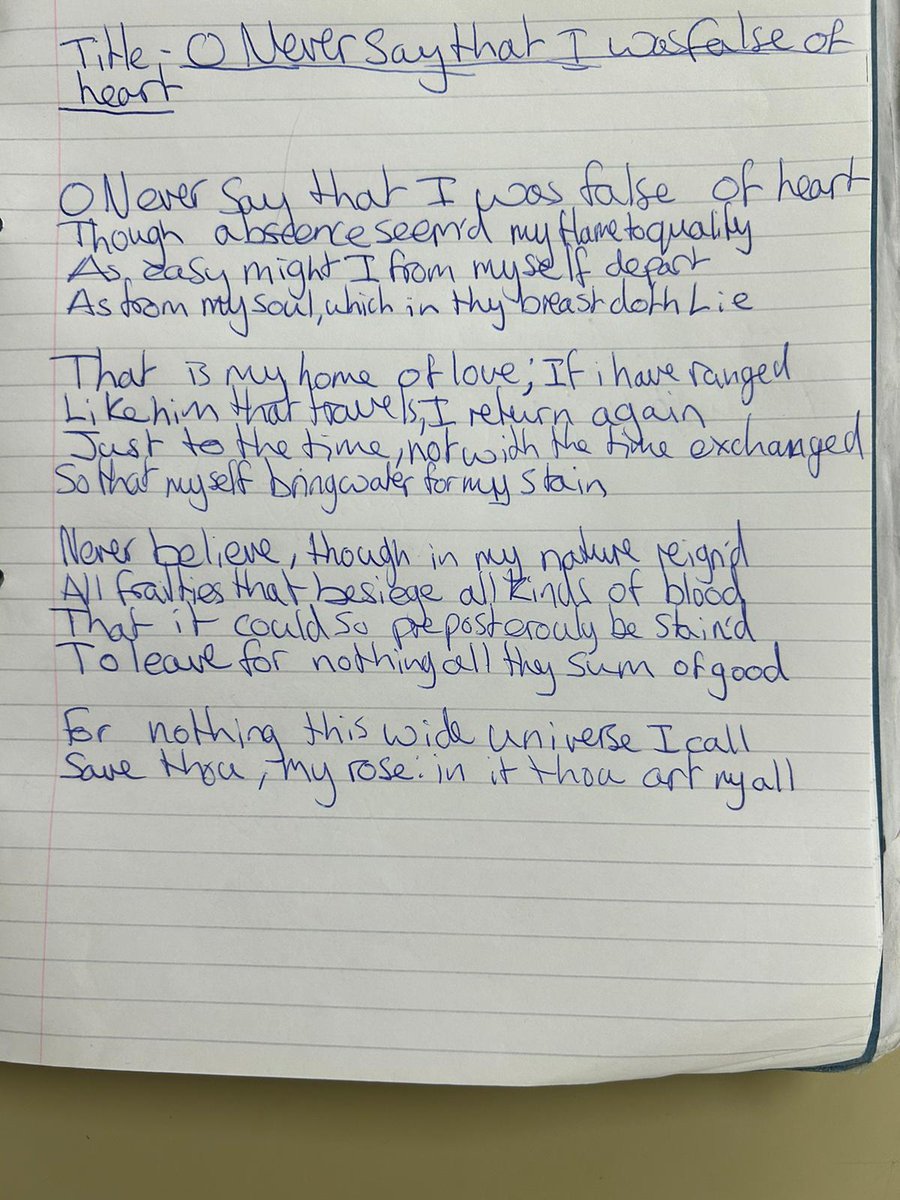 Title:- O Never Say that I was false of
heart
O Never Say that I was false of heart
Though absdence seem'd my flame to qualify
As easy might I from my self depart
As from my soul, which in thy breast doth Lie
That is my home of love; If i have ranged
Like him that travels, I return again
Just to the time, not with the time exchanged
So that myself bring water for my stain
Never believe, though in my nature reign'd
All frailties that besiege all kinds of blood
That it could so preposterouly be stain'd
To leave for nothing all thy sum of good
For nothing this wide universe I call
Save thou, my rose: in it thou art my all